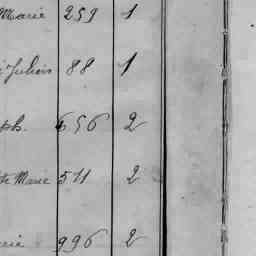 Marie 259 1
Julien 88 1
ph. 656 2
te Marie 511 2
rie 996 2